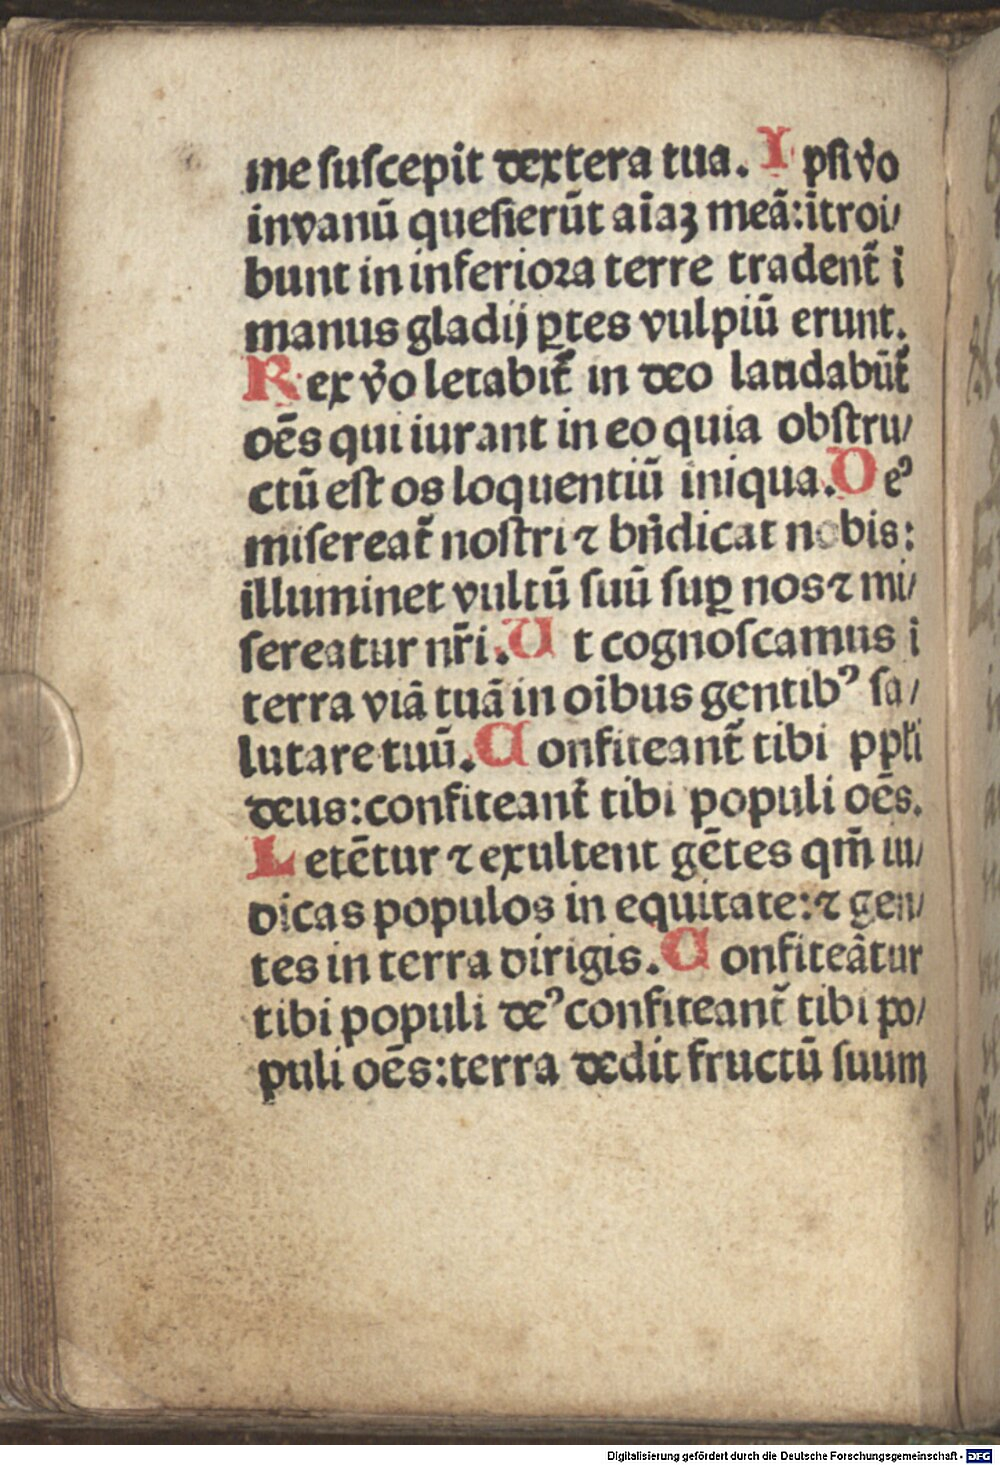 me suſcepit dextera tua. I pſi v̊o
invanū queſierūt aīaꝫ meā: ītroi/
bunt in inferioꝛa terre tradent̄ i
manus gladij ꝑtes vulpiū erunt.
Rex v̊o letabit̄ in deo laudabūt̄
oēs qui iurant in eo quia obſtru/
ctū eſt os loquentiū iniqua. D eꝰ
miſereat̄ noſtri ⁊ bn̄dicat nobis:
illuminet vultū ſuū ſuꝑ nos ⁊ mi/
ſereatur nr̄i. U t cognoſcamus i
terra viā tuā in oībus gentibꝰ ſa/
lutare tuū. C onfiteant̄ tibi ppl̄i
deus: confiteant̄ tibi populi oēs.
L etētur ⁊ exultent gētes qm̄ iu/
dicas populos in equitate: ⁊ gen/
tes in terra dirigis. C onfiteātur
tibi populi deꝰ confiteant̄ tibi po/
puli oēs: terra dedit fructū ſuum
Digitalisierung gefördert durch die Deutsche Forschungsgemeinschaft - DFG